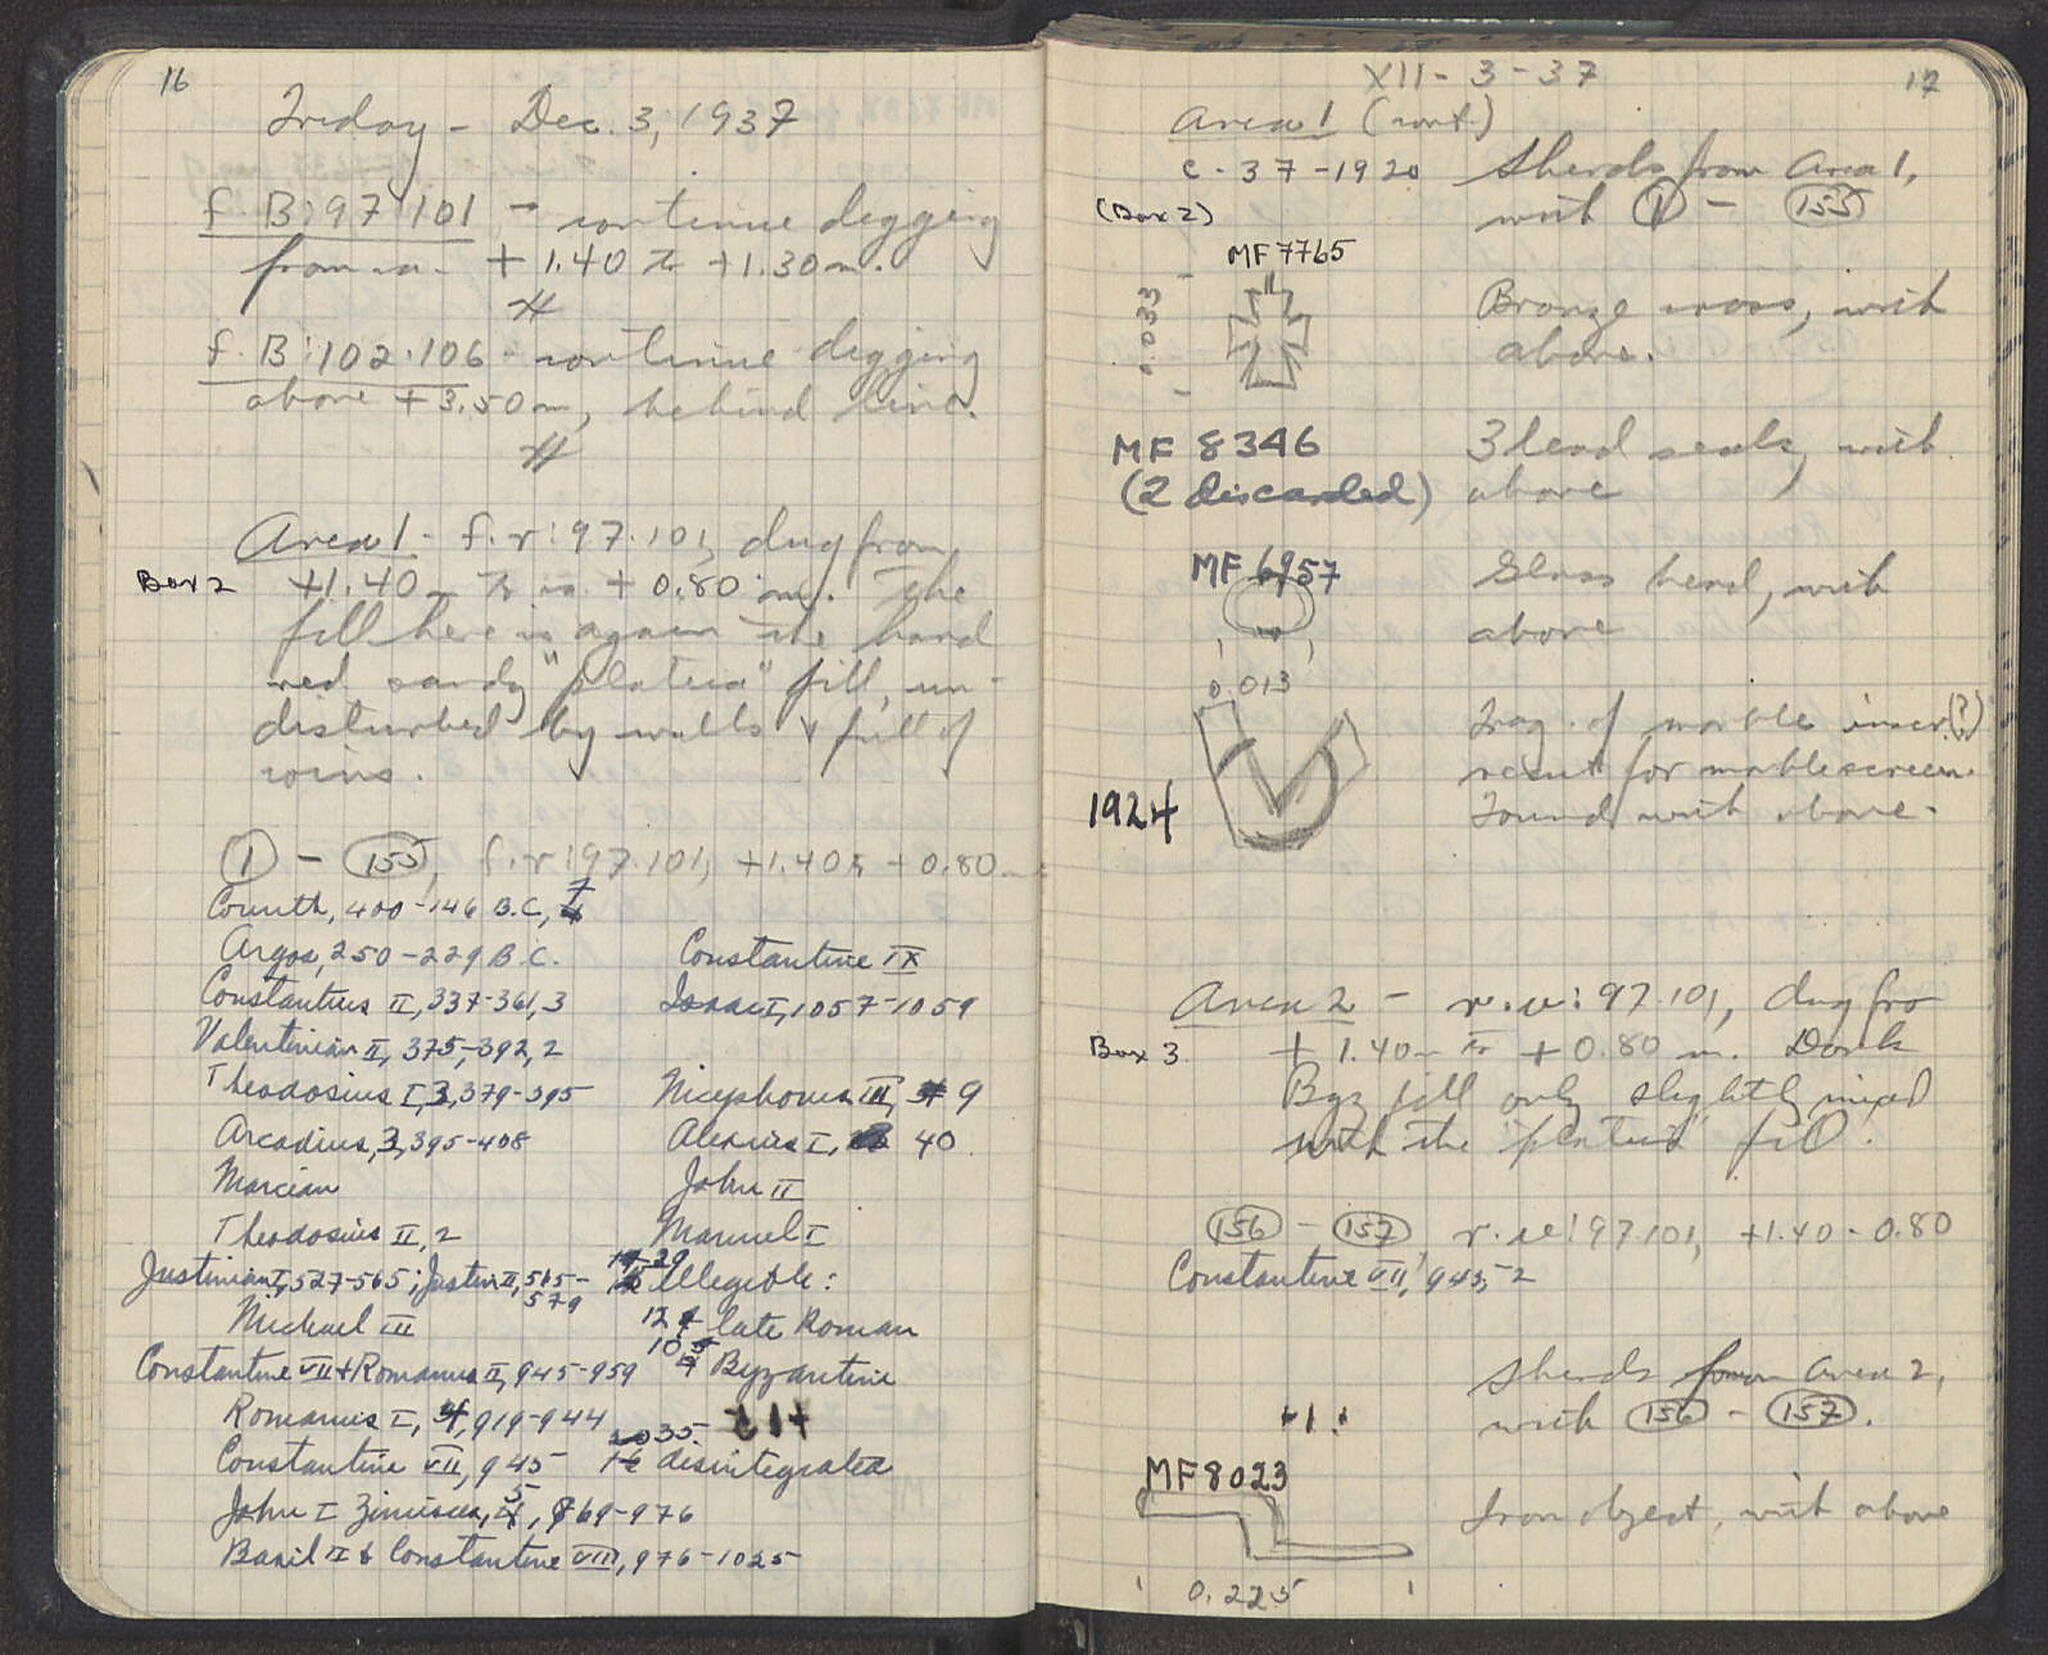 16
Friday - Dec. 3, 1937
f. B: 97.101 - continue digging
from ca. + 1.40 to +1.30 m.
f. B: 102.106 - continue digging
above + 3.50 m, behind line.
Area 1 - f. r: 97.101, dug from
Box 2
+1.40 m to ca. + 0.80 m. The
fill here is again the hard
red sandy "plateia" fill, un-
disturbed by walls & full of
coins.
1 - 155, f. r: 97.101, +1.40 to + 0.80 m.
Corinth, 400-146 B.C., 7
Argos, 250-229 B.C.
Constantius II, 337-361, 3
Valentinian II, 375-392, 2
Theodosius I, 3, 379-395
Arcadius, 3, 395-408
Marcian
Theodosius II, 2
Justinian I, 527-565; Justin II, 565-
579
Michael III
Constantine VII + Romanus II, 945-959
Romanus I, 4, 919-944
Constantine VII, 945
John I Zimisces, 5, 969-976
Basil II & Constantine VIII, 976-1025
Constantine IX
Isaac I, 1057-1059
Nicephorus III, 9
Alexius I, 40
John II
Manuel I
29 illegible:
12 late Roman
10 5 Byzantine
35
disintegrated
XII - 3 - 37
17
Area 1 (cont.)
C - 37 - 1920 Sherds from Area 1,
(Box 2) with 1 - 155
MF 7765
0.033
Bronze cross, with
above.
MF 8346 3 lead seals, with
(2 discarded) above
MF 6957 Glass bead, with
above
0.013
Frag. of marble inscr. (?)
recut for marble screen.
1924 Found with above.
Area 2 - r. u: 97.101, dug fro
Box 3 + 1.40 m to + 0.80 m. Dark
Byz fill only slightly mixed
with the "plateia" fill.
156 - 157, r. u: 97.101, +1.40 - 0.80
Constantine VII, 945, 2
Sherds from Area 2,
with 156 - 157.
MF 8023
Iron object, with above
0.225